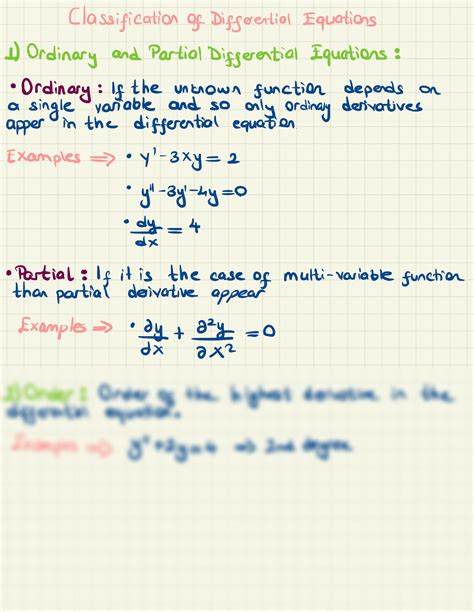 Classification of Differential Equations
1) Ordinary and Partial Differential Equations :
• Ordinary : If the unknown function depends on
a single variable and so only ordinary derivatives
apper in the differential equation
Examples ⇒ • y' - 3xy = 2
• y'' - 3y' - 4y = 0
• dy/dx = 4
• Partial : If it is the case of multi-variable function
than partial derivative appear
Examples ⇒ • ∂y/dx + ∂²y/∂x² = 0
2) Order : Order of the highest derivative in the
equation.
Examples ⇒ y'' + 2y = 4 ⇒ 2nd degree